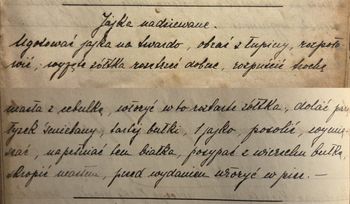 Jajka nadziewane.
Ugotować jajka na twardo, obrać z łupiny, rozpoło-
wić, wyjąć żółtka rozetrzeć dobrze, rozpuścić trochę
masła z cebulką, włożyć w to roztarte żółtka, dolać
łyżek śmietany, tartej bułki, 1 jajko, posolić, wymie-
szać, napełniać tem białka, posypać z wierzchu bułką,
skropić masłem, przed wydaniem włożyć w piec. —